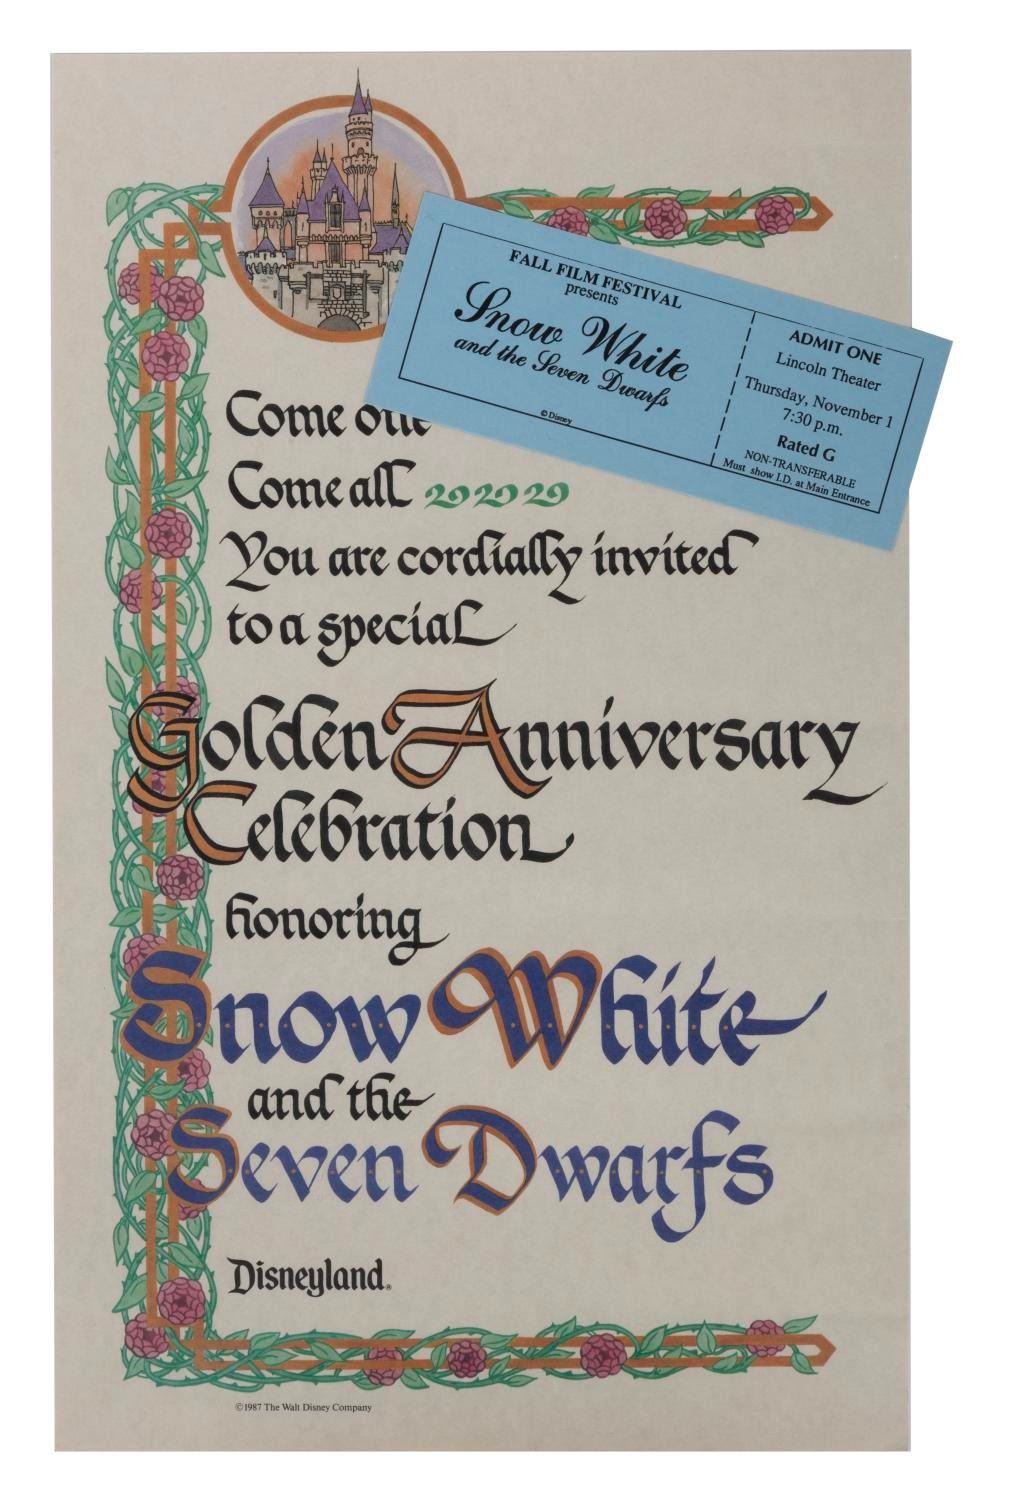 FALL FILM FESTIVAL
presents
Snow White
and the Seven Dwarfs
© Disney
ADMIT ONE
Lincoln Theater
Thursday, November 1
7:30 p.m.
Rated G
NON-TRANSFERABLE
Must show I.D. at Main Entrance
Come one
Come all
You are cordially invited
to a special
Golden Anniversary
Celebration
honoring
Snow White
and the
Seven Dwarfs
Disneyland®
©1987 The Walt Disney Company